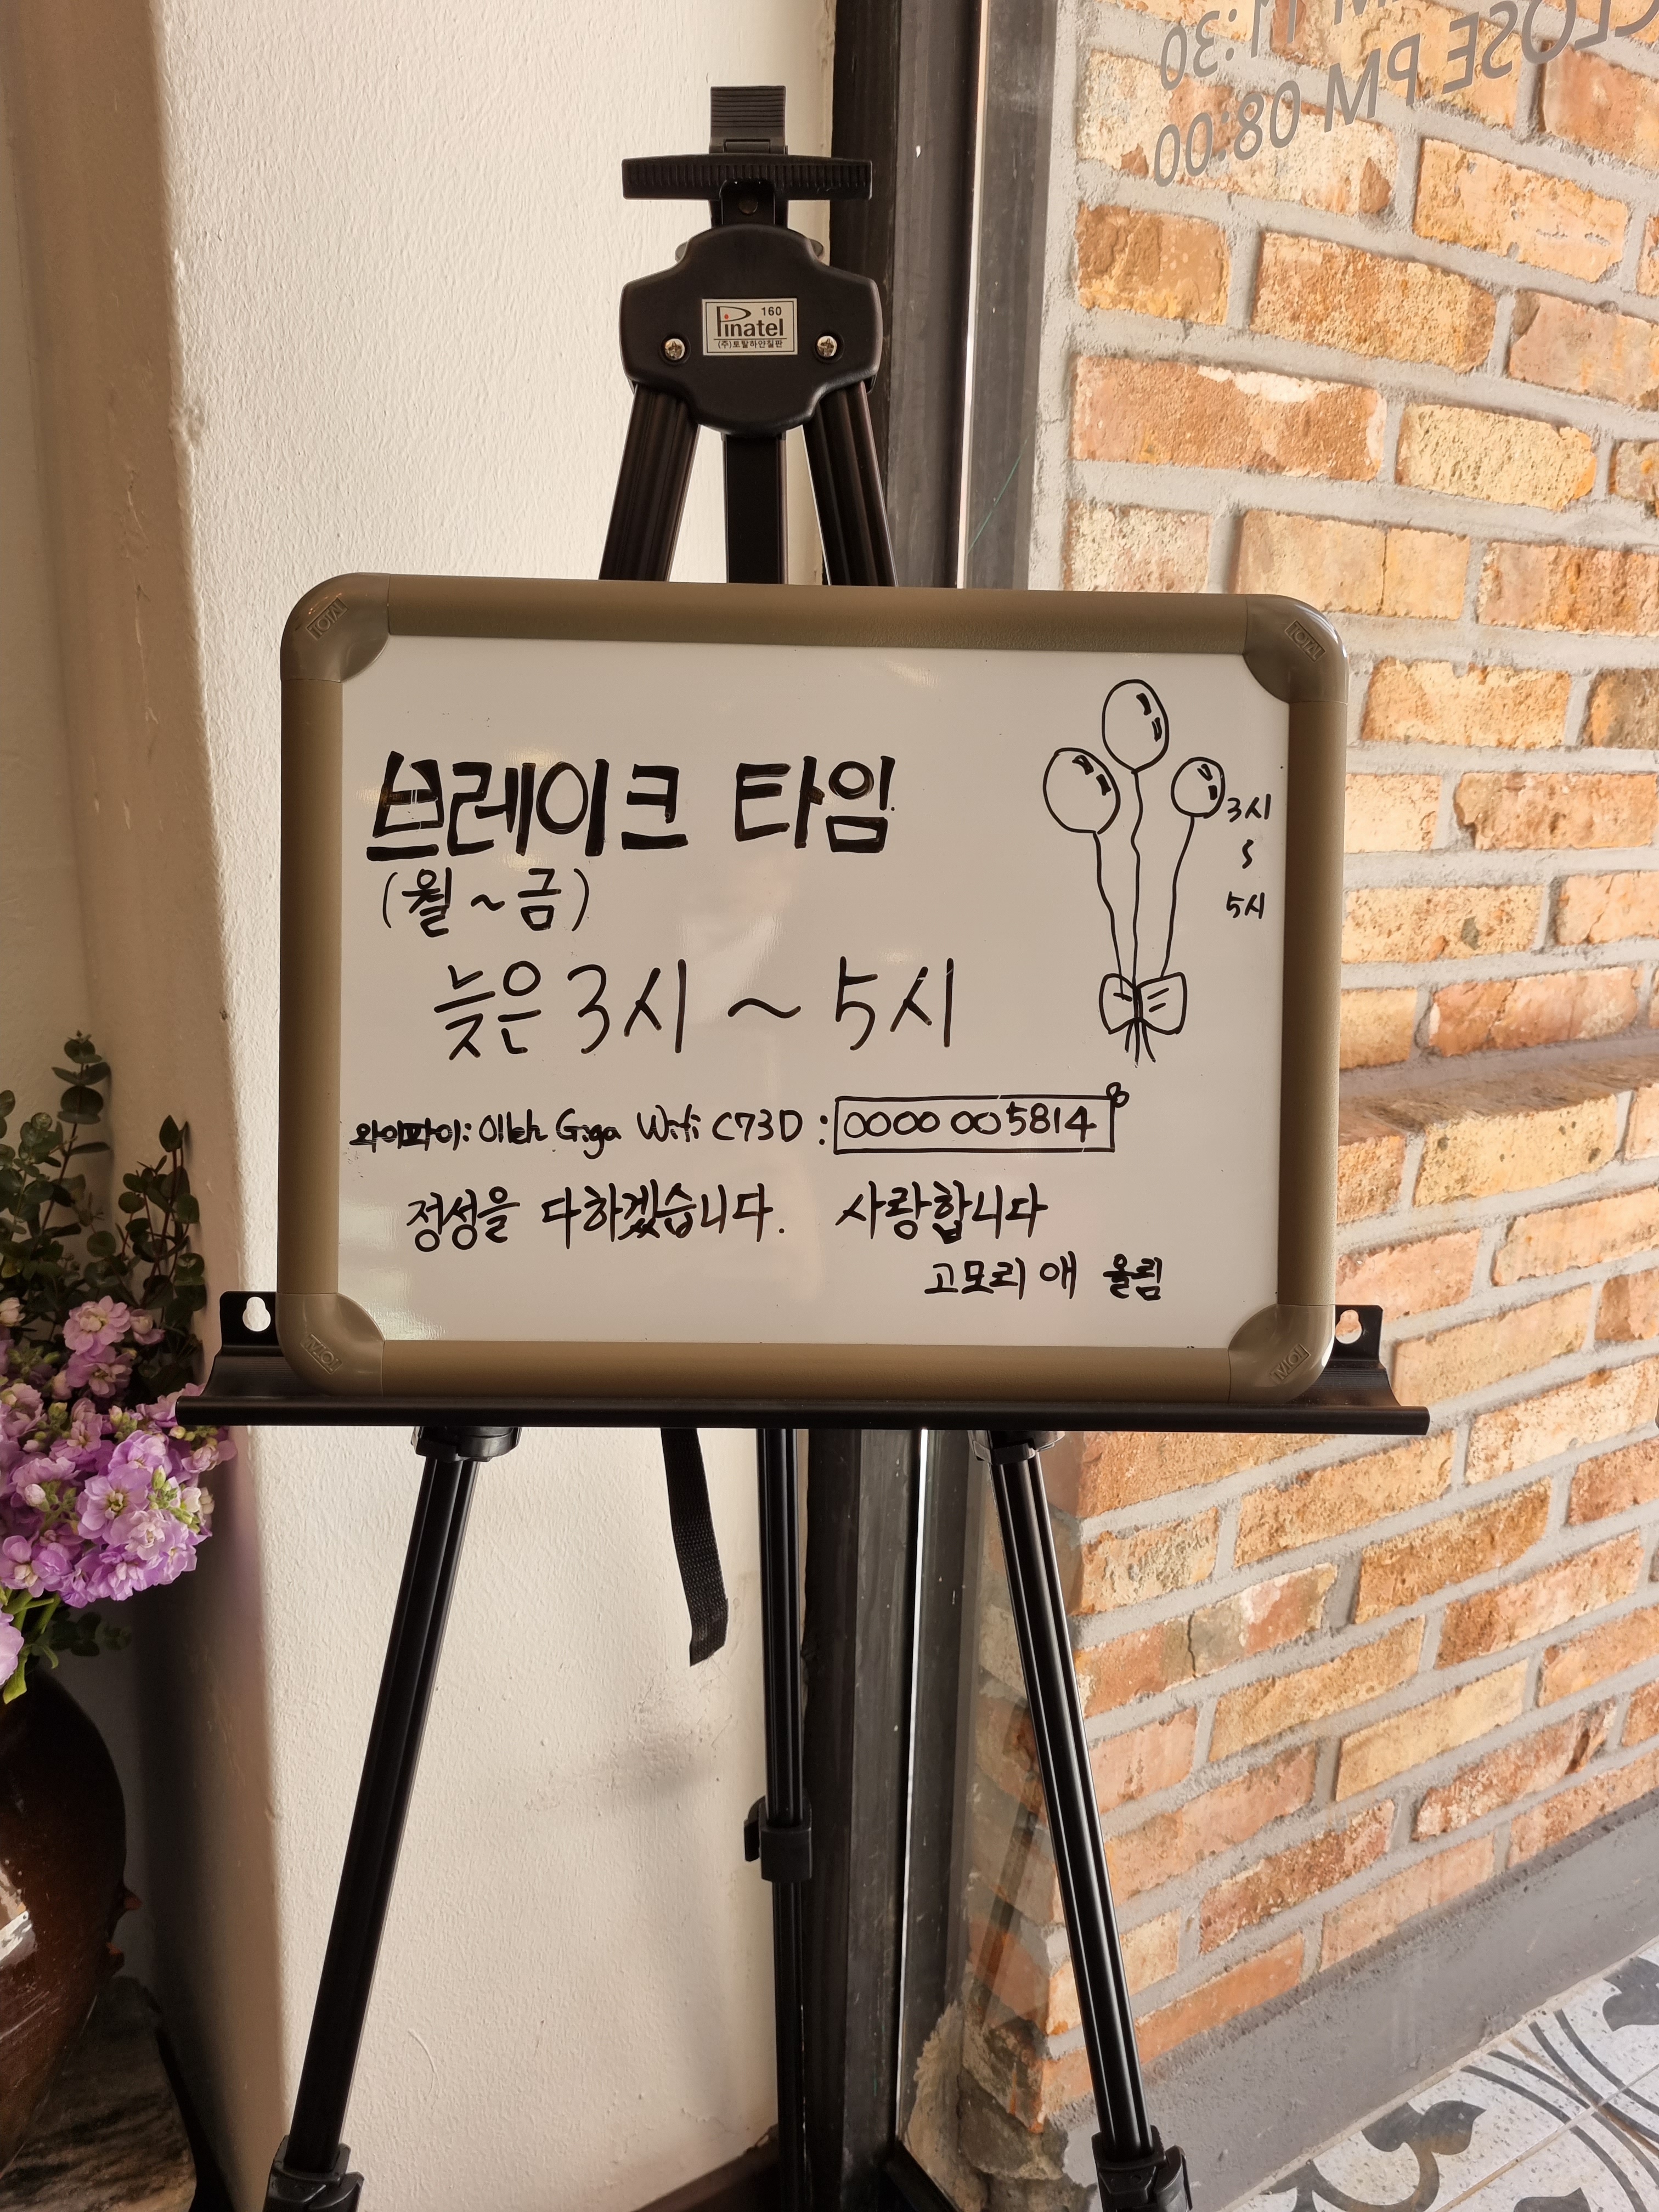 AM 11:30
CLOSE PM 08:00
Pinatel 160
(주)토탈하얀칠판
TOTAL
TOTAL
브레이크 타임
(월 ~ 금)
늦은 3시 ~ 5시
3시
~
5시
와이파이: Olleh Giga Wifi C73D : 0000 005814
정성을 다하겠습니다. 사랑합니다
고모리 애 올림
TOTAL
TOTAL